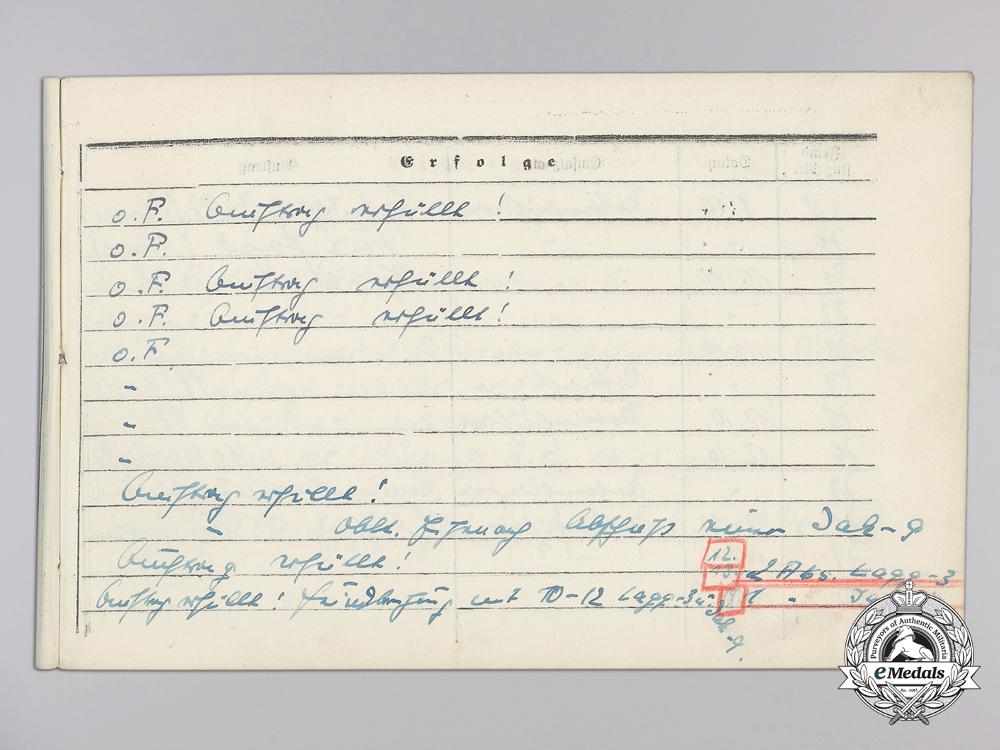 Erfolge
o. F. Auftrag erfüllt!
o. F.
o. F. Auftrag erfüllt!
o. F. Auftrag erfüllt!
o. F
"
"
"
Auftrag erfüllt!
" Oblt. Abschuß einer Jak-9
Auftrag erfüllt! 12.
13. 2 Abs. Lagg-3
Auftrag erfüllt! Feindberührung mit 10-12 Lagg-3 u. Jak-9. 1 "
Purveyors of Authentic Militaria
eMedals